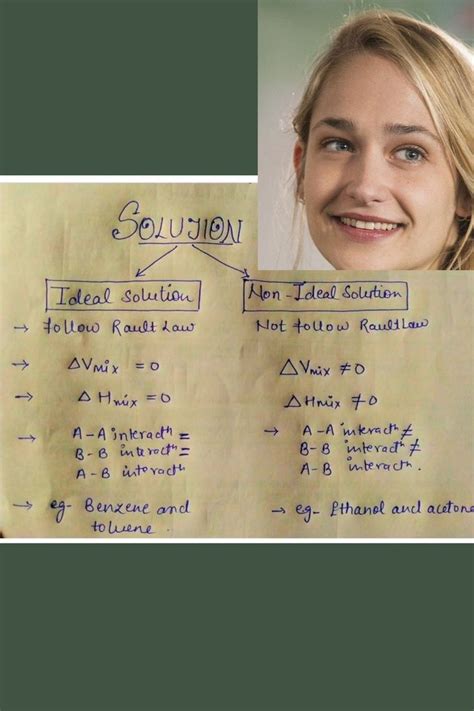 SOLUTION
Ideal solution
→ follow Rault Law
→ ΔVmix = 0
→ ΔHmix = 0
→ A-A interactn =
B-B interactn =
A-B interactn
→ eg- Benzene and
toluene.
Non-Ideal Solution
Not follow Rault Law
ΔVmix ≠ 0
ΔHmix ≠ 0
→ A-A interactn ≠
B-B interactn ≠
A-B interactn.
→ eg- Ethanol and acetone